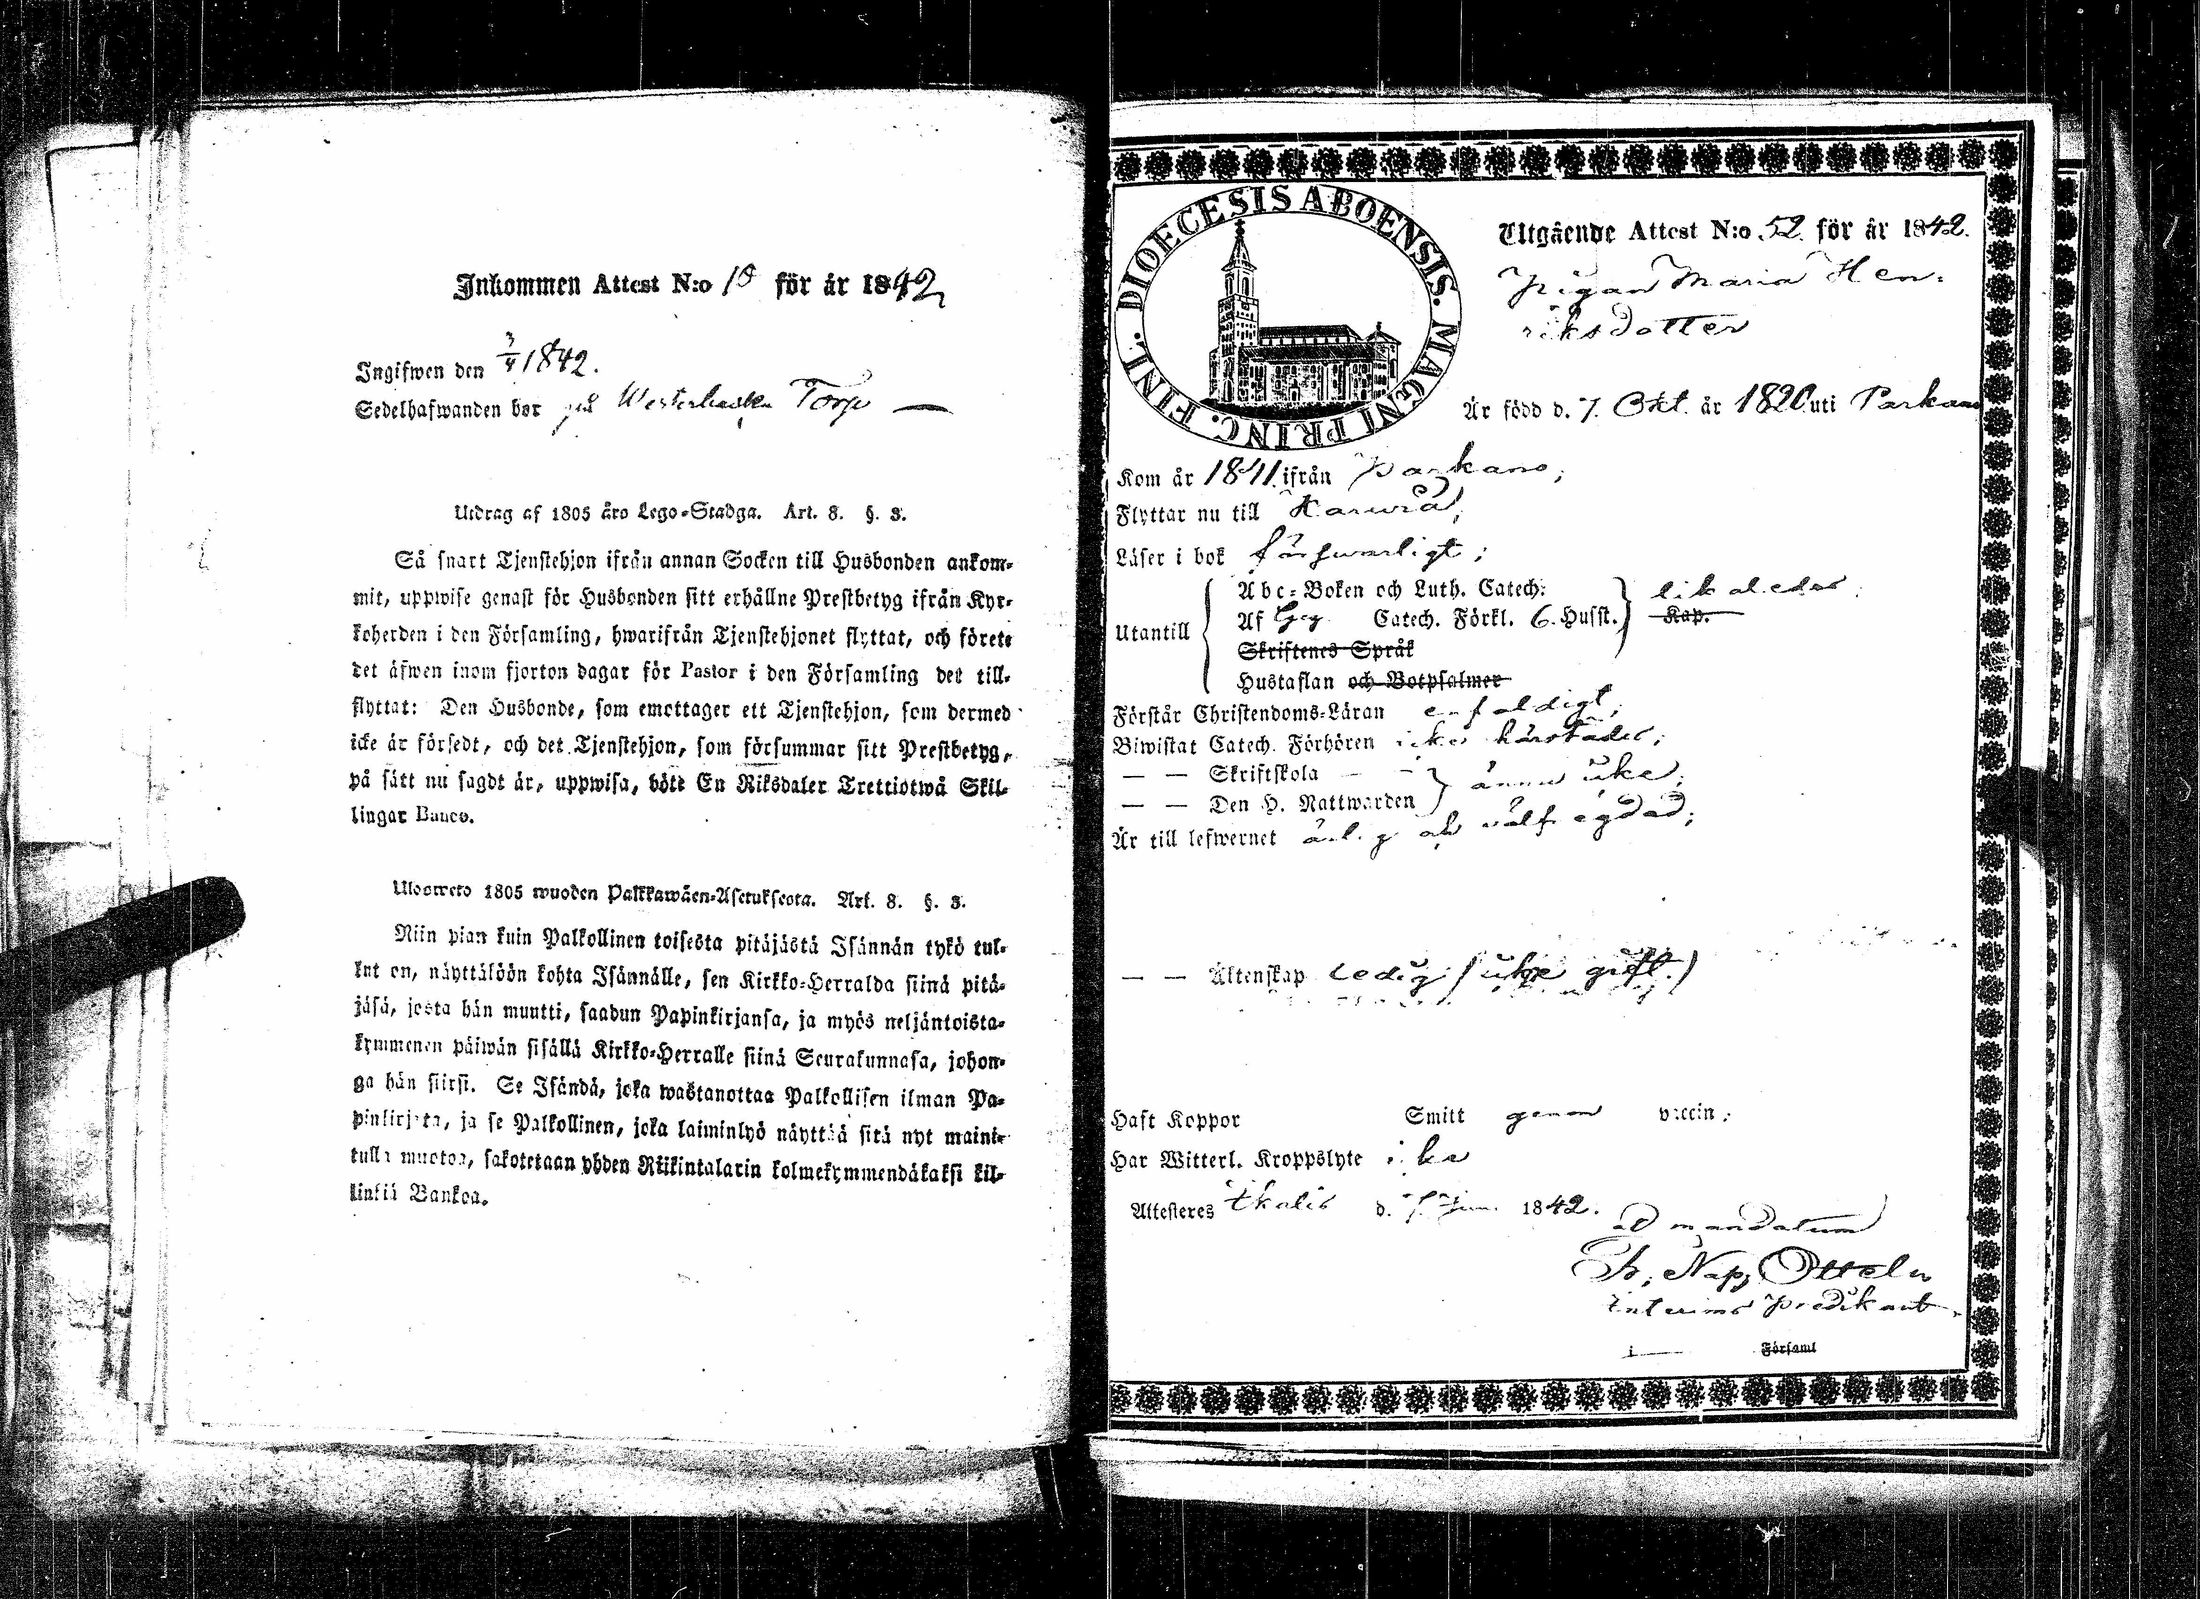 Inkommen Attest N:o 10 för år 1842
Ingifwen den 3/4 1842.
Sedelhafwanden bor på Torp —
Utdrag af 1805 års Lego-Stadga. Art. 8. §. 3.
Så snart Tjenstehjon ifrån annan Socken till Husbonden ankom-
mit, uppwise genast för Husbonden sitt erhållne Prestbetyg ifrån Kyr-
koherden i den Församling, hwarifrån Tjenstehjonet flyttat, och förete
det äfwen inom fjorton dagar för Pastor i den Församling det till-
flyttat: Den Husbonde, som emottager ett Tjenstehjon, som dermed
icke är försedt, och det Tjenstehjon, som försummar sitt Prestbetyg,
på sätt nu sagdt är, uppwisa, böte En Riksdaler Trettiotwå Skil-
lingar Banco.
Ulosweto 1805 wuoden Palkkawäen-Asetuksesta. Art. 8. §. 3.
Niin pian kuin Palkollinen toisesta pitäjästä Isännän tykö tul-
lut on, näyttäköön kohta Isännälle, sen Kirkko-Herralda siinä pitä-
jäsä, josta hän muutti, saadun Papinkirjansa, ja myös neljäntoista-
kymmenen päiwän sisällä Kirkko-Herralle siinä Seurakunnasa, johon-
ga hän siirsi. Se Isändä, joka wastanottaa Palkollisen ilman Pa-
pinkirjata, ja se Palkollinen, joka laiminlyö näyttää sitä nyt maini-
tulla muotoa, sakotetaan yhden Riikintalarin kolmekymmendäkaksi kil-
linkiä Bankoa.
DIOECESIS ABOENSIS. MAGNI PRINC. FINL.
Utgående Attest N:o 52 för år 1842.
Pigan Maria Hen-
riksdotter
Är född d. 7. Okt. år 1820 uti Parkano
Kom år 1841 ifrån Parkano;
Flyttar nu till
Läser i bok försvarligt;
Utantill
Abc-Boken och Luth. Catech.
Af Catech. Förkl. 6. Husst. Kap. likaledes;
Skriftenes Språk
Hustaflan och Botpsalmer
Förstår Christendoms-Läran enfaldigt;
Biwistat Catech. Förhören icke härstädes;
— — Skriftskola — —
— — Den H. Nattwarden ännu icke;
Är till lefwernet ärlig och välfrägdad;
— — Äktenskap Ledig (icke gift.)
Haft Koppor Smitt genom vaccin;
Har Witterl. Kroppslyte icke
Attesteres Ikalis d. 7. 1842.
ad mandatum
Nap. Ottelin
interims predikant.
i Församl